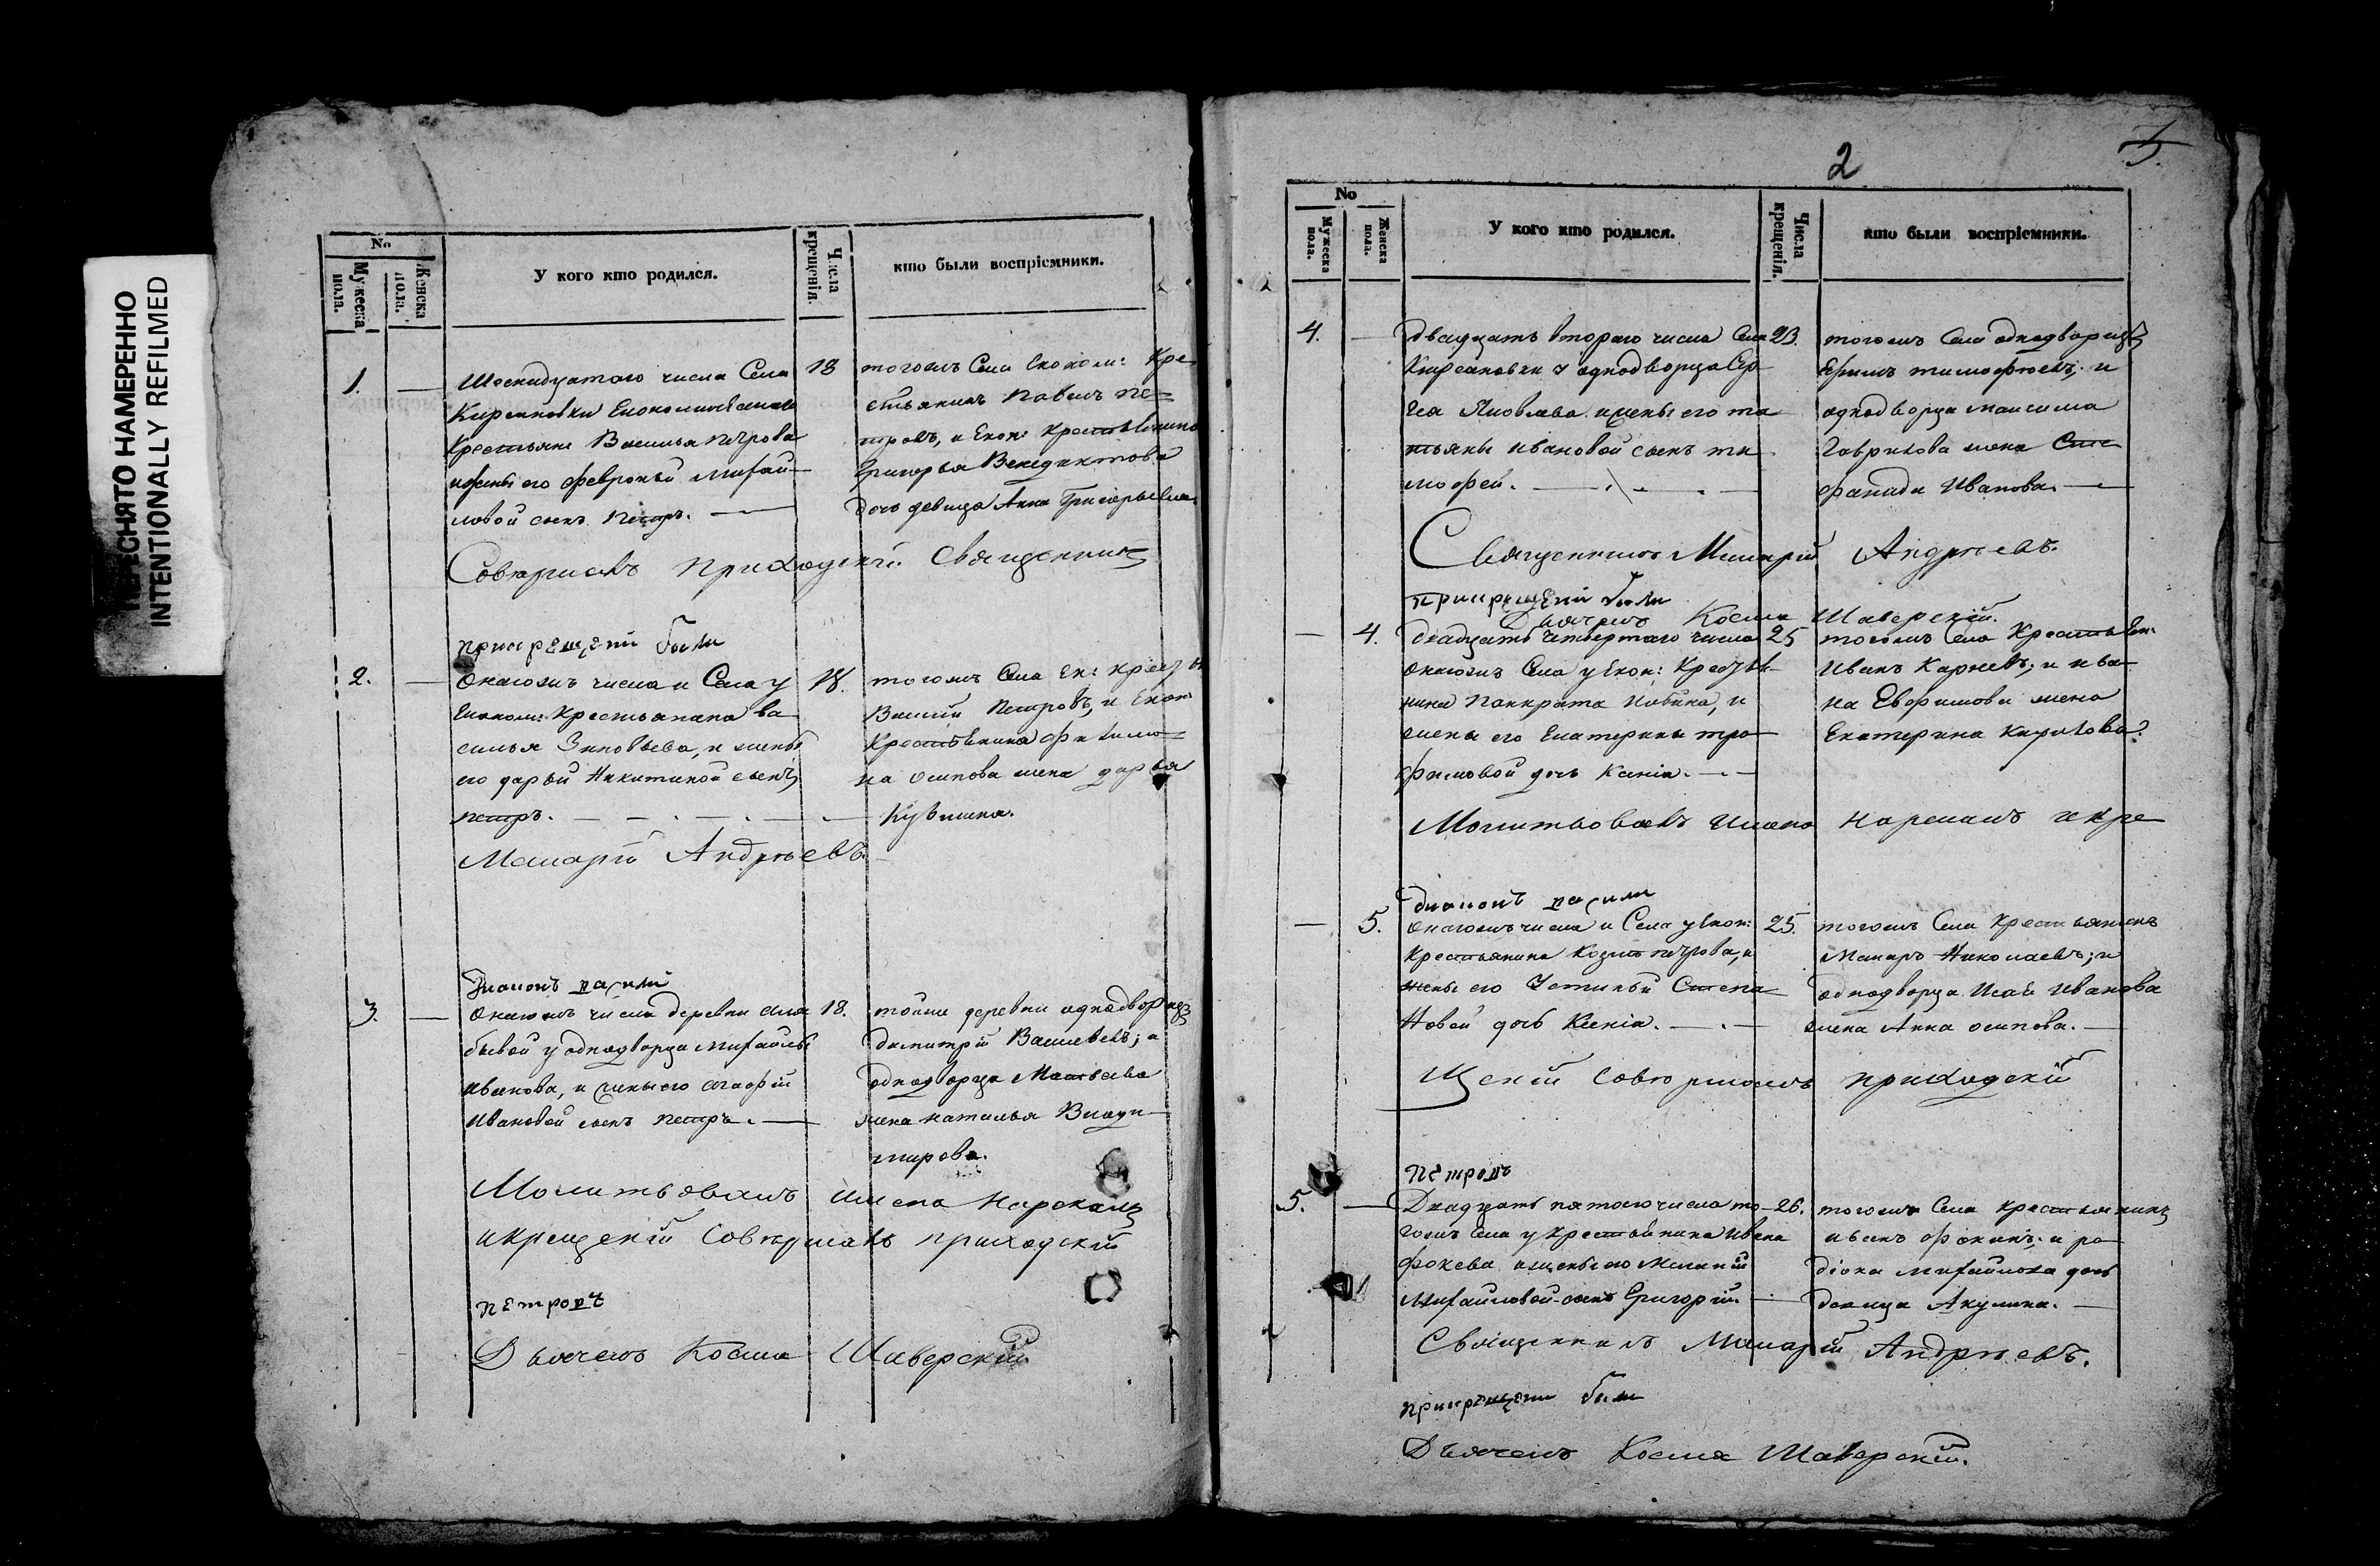 ПЕРЕСНЯТО НАМЕРЕННО
INTENTIONALLY REFILMED
No
Мужеска пола.
Женска пола.
У кого кто родился.
Числа крещенія.
кто были воспріемники.
1.
числа Села
Кирсановки
Крестьяни Василья Петрова
и жены его Февроньи Михай-
ловой сынъ Петръ.
18
тогожъ Села Економ: Кре
стьянинъ Павелъ Пе=
тровъ, и Екон: Крестьянина
Григорья Венедиктова
дочь девица Анна Григорьева.
Совершалъ приходскій Священникъ
прикрещеніи были
2.
Онагожъ числа и Села у
Економ: Крестьянина Ва
силья Зиновьева, и жены
его дарьи Никитиной сынъ
петръ.
18.
тогожъ Села Ек: крест
Василій Петровъ, и Екон
Крестьянина Филимо=
на Осипова жена дарья
Кузмина.
Макарій Андрѣевъ.
Диаконъ василій
3.
Онагожъ числа деревни
у однодворца Михайлы
Иванова, и жены его агафіи
Ивановой сынъ Петръ.
18.
тойже деревни однодворецъ
Димитрій Василевъ; и
однодворца Матвева
жена Наталья Влади-
мирова.
Молитвовалъ имена Нарекалъ
икрещеніи Совершалъ приходскій
петровъ
Дьячекъ Косма Шаверскій
2
No
Мужеска пола.
Женска пола.
У кого кто родился.
Числа крещенія.
кто были воспріемники.
4.
Двадцать втораго числа Села
Кирсановки у однодворца Сер
гея Яковлева и жены его та
тьяны ивановой сынъ ти
мофей.
23.
тогожъ Села однодворецъ
Ефимъ тимофѣевъ; и
однодворца максима
Гаврилова жена Сте
фанида Иванова.
Священникъ Макарій Андрѣевъ.
прикрещеніи были
Дьячекъ Косма Шаверскій.
4.
двадцать четвертаго числа
онагожъ Села у Екон: Крестья
нина Панкрата, и
жены его Екатерины тро
фимовой дочь Ксенія.
25
тогожъ Села Крестьян:
Иванъ Карпевъ; и ива
на Ефимова жена
Екатерина Кирилова.
Молитвовалъ Имена нарекалъ икре
диаконъ василій
5.
онагожъ числа и Села у Екон:
Крестьянина Козмы петрова, и
жены его Устиньи Степа
Новой дочь Ксенія.
25.
тогожъ Села Крестьянинъ
Макаръ Николаевъ; и
однодворца Исаи Иванова
жена Анна осипова.
Щеніи Совершалъ приходскій
петровъ
5.
Двадцать пятого числа то
гожъ Села у Крестьянина Ивана
Фокева и жены его Меланіи
Михайловой сынъ Григорій.
26.
тогожъ Села крестьянинъ
иванъ фокинъ; и ро
діона Михайлова дочь
девица Акулина.
Священникъ Макарій Андрѣевъ.
прикрещеніи были
Дьячекъ Косма Шаверскій.